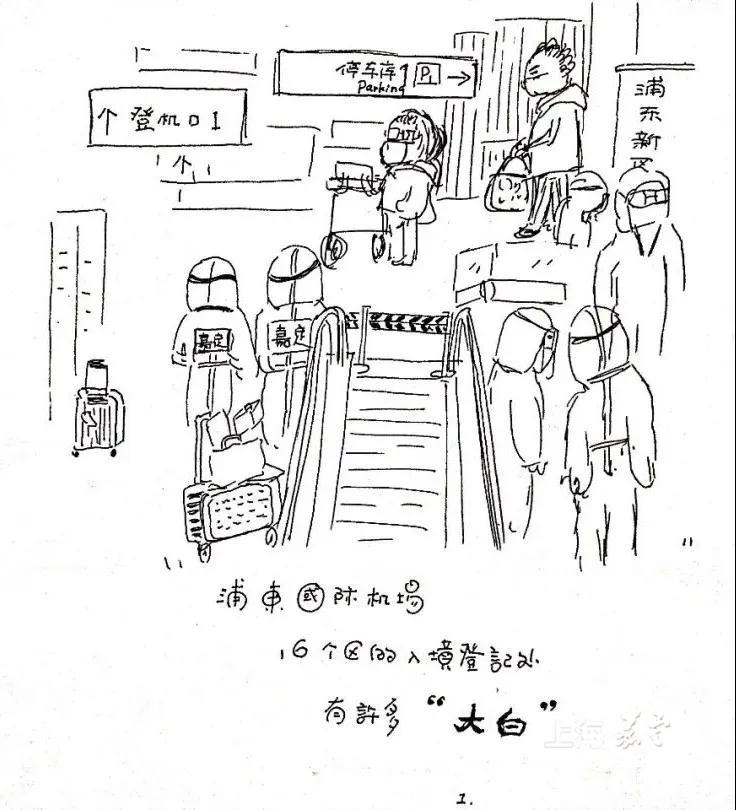 停车库↑ P1 →
Parking
↑ 登机口1
↑
浦东新区
嘉定
嘉定
浦東国际机场
16个区的入境登記处
有許多“大白”
上海
1.